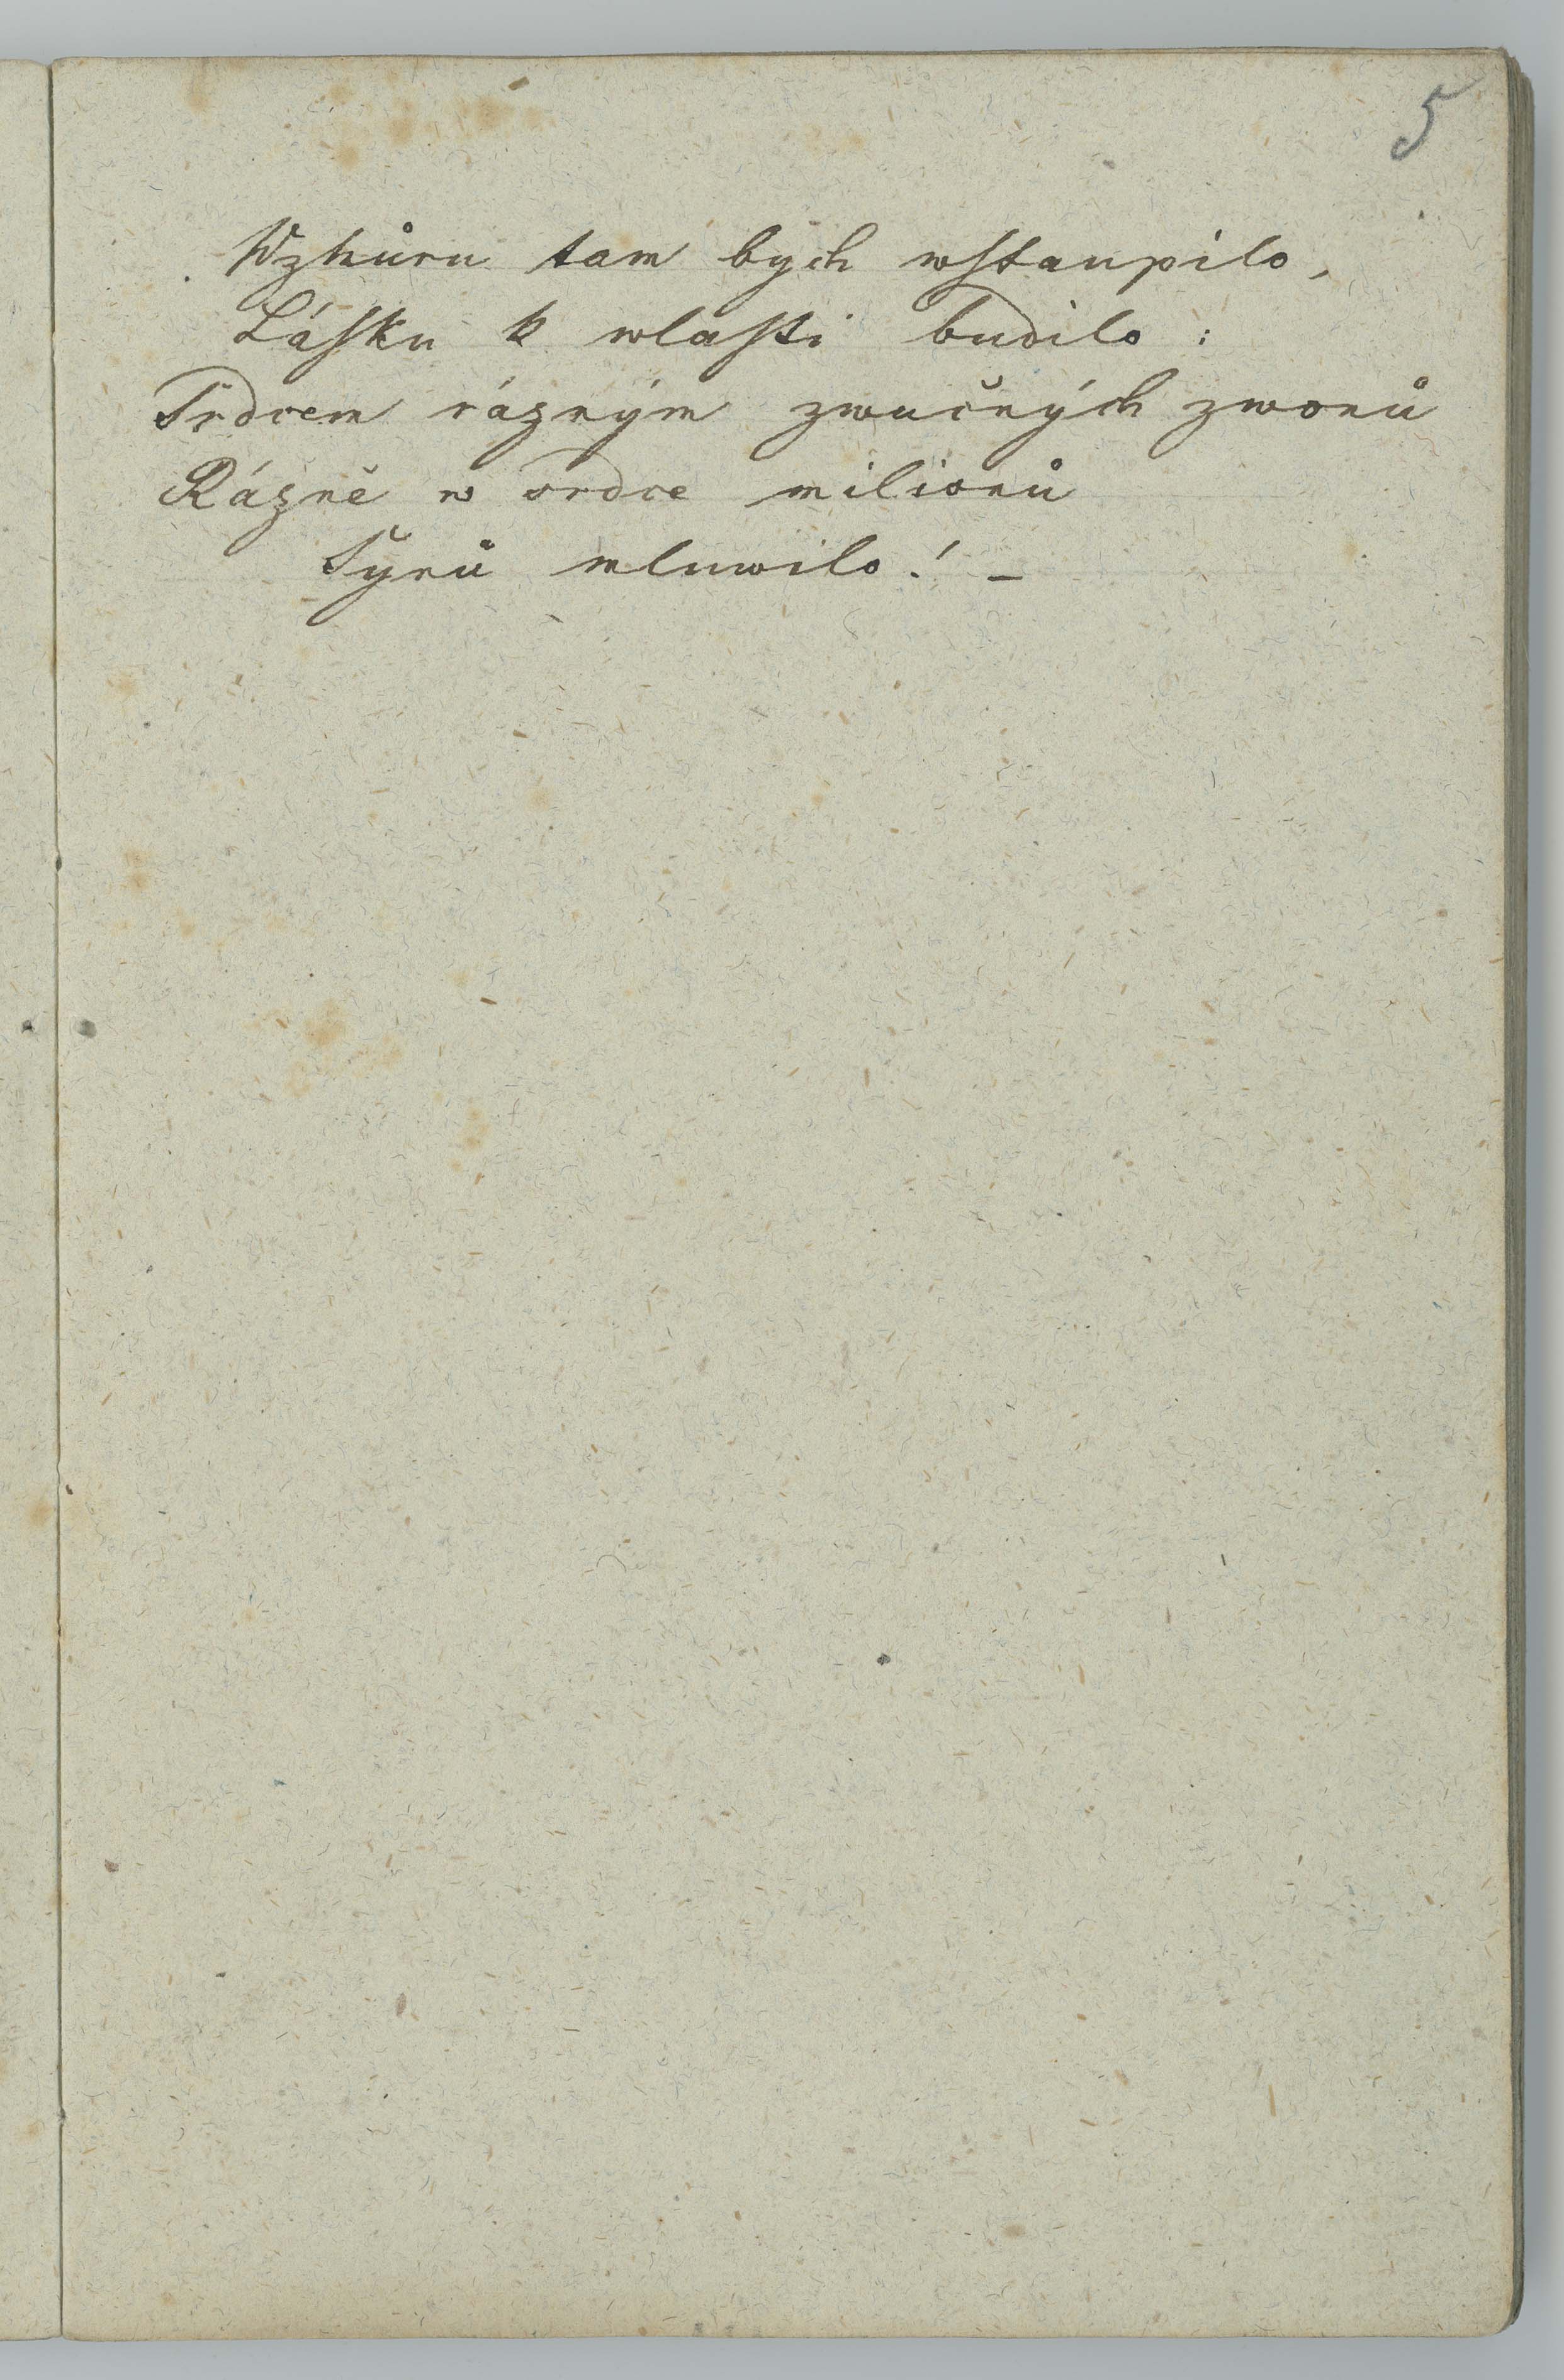 5
Wzhůru tam bych wstaupilo,
Lásku k wlasti budilo:
Srdcem rázným zwučných zwonů
Rázně w srdce milionů
Synů mluwilo! –